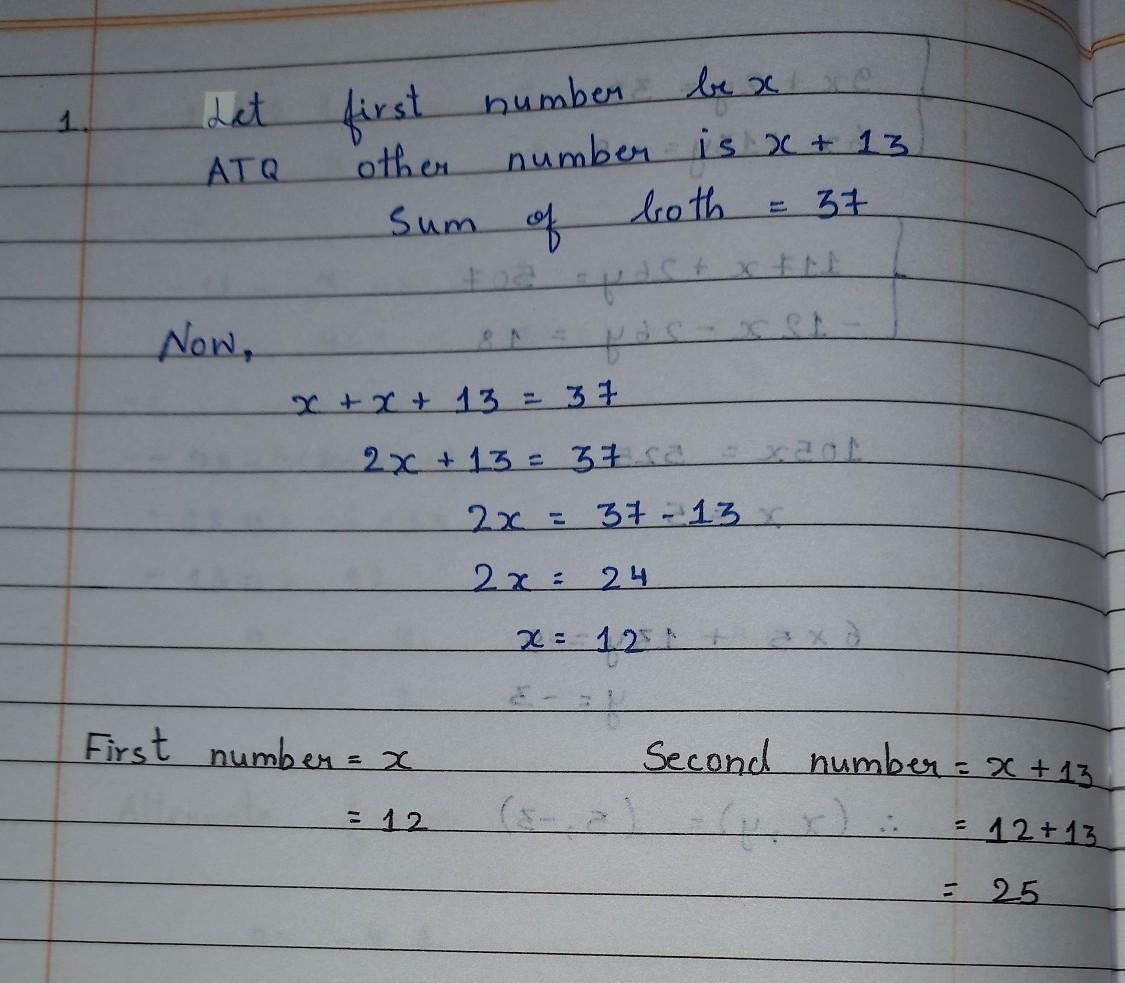 1. Let first number be x
ATQ other number is x + 13
Sum of both = 37
Now,
x + x + 13 = 37
2x + 13 = 37
2x = 37 - 13
2x = 24
x = 12
First number = x Second number = x + 13
= 12 = 12 + 13
= 25